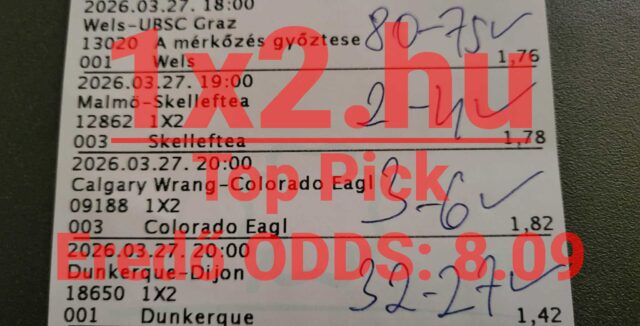 2026.03.27. 18:00
Wels-UBSC Graz
13020 A mérkőzés győztese 80-75 ✓
001 Wels 1,76
2026.03.27. 19:00
Malmö-Skelleftea
12862 1X2 2-4 ✓
003 Skelleftea 1,78
2026.03.27. 20:00
Calgary Wrang-Colorado Eagl
09188 1X2 3-6 ✓
003 Colorado Eagl 1,82
2026.03.27. 20:00
Dunkerque-Dijon
18650 1X2 32-27 ✓
001 Dunkerque 1,42
1x2.hu
Top Pick
Eredő ODDS: 8.09